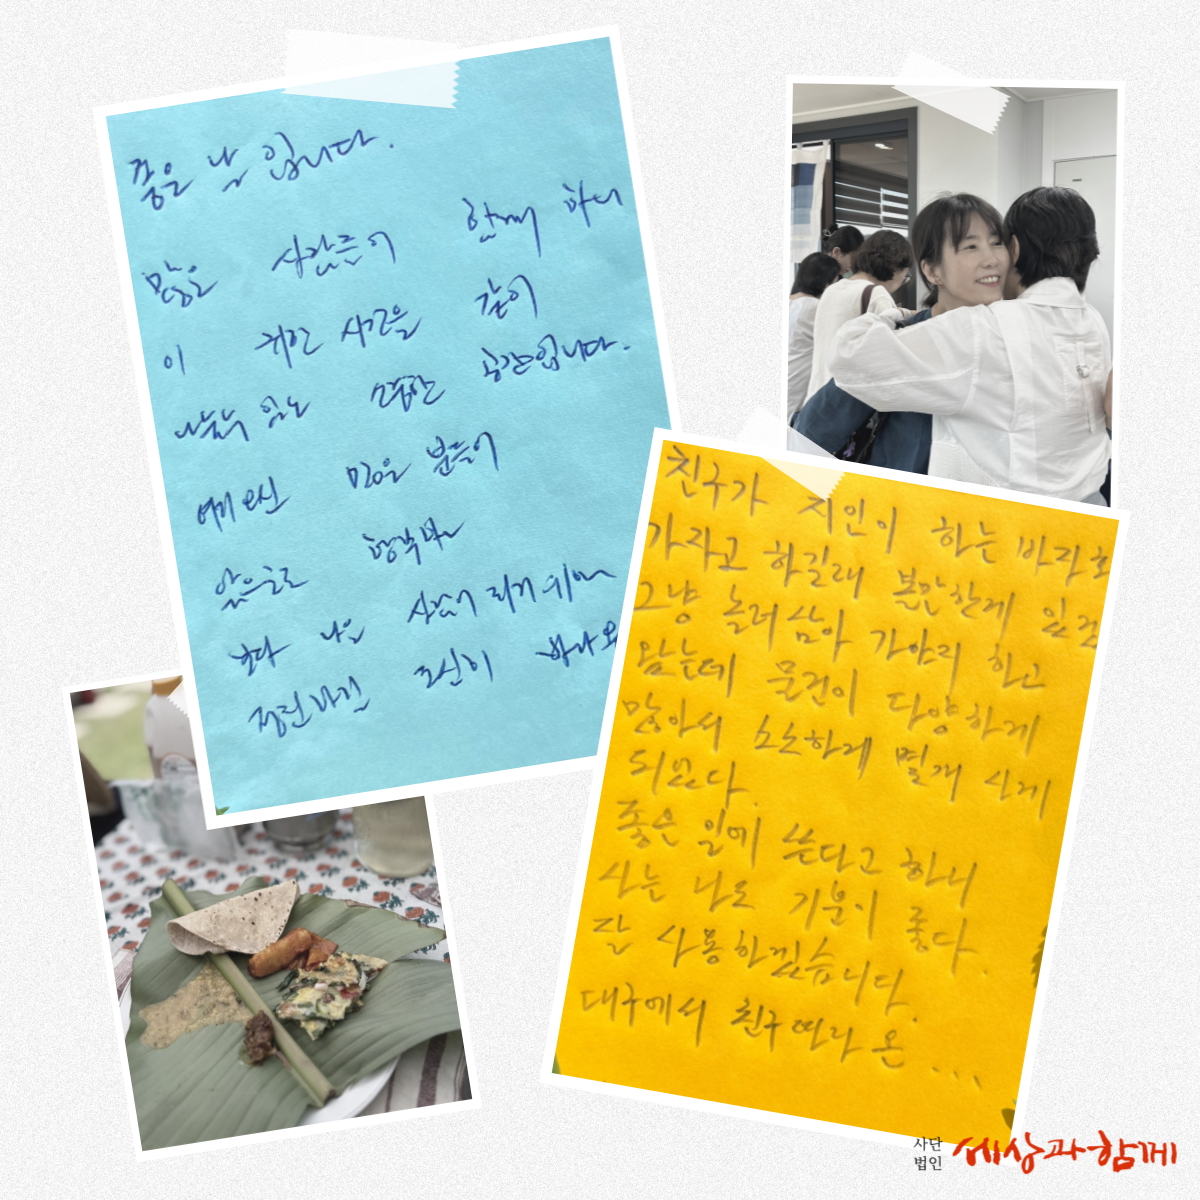 좋은 날 입니다.
많은 사람들이 함께 하니
이 귀한 시간을 같이
나눌수 있는 소중한 공간입니다.
에 오신 많은 분들이
앞으로도 행복한
보다 나은 사회가 되기 위해
정진하길 조심히
친구가 지인이 하는 바자회
가자고 하길래 볼만한게 있겠
그냥 놀러삼아 가야리 하고
왔는데 물건이 다양하게
많아서 소소하게 몇개 사게
되었다.
좋은 일에 쓴다고 하니
사는 나도 기분이 좋다.
잘 사용하겠습니다.
대구에서 친구따라 온 ...
사단
법인
세상과함께